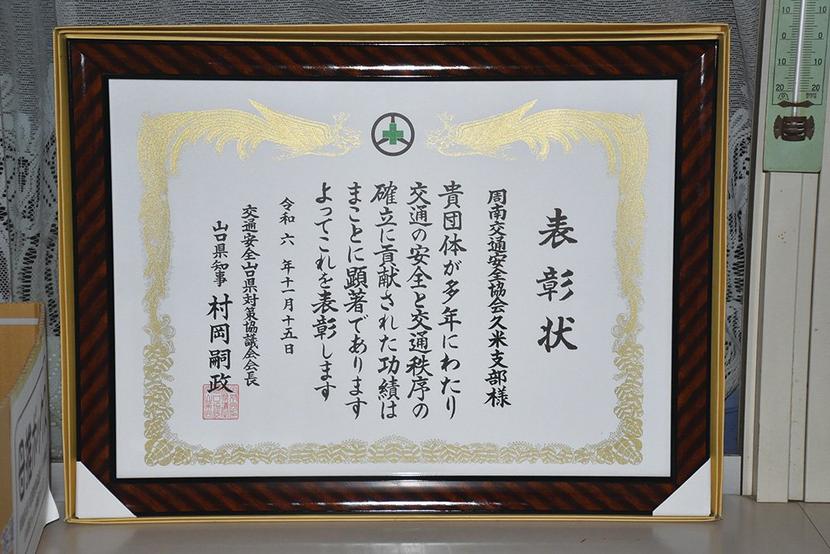 表彰状
周南交通安全協会久米支部様
貴団体が多年にわたり
交通の安全と交通秩序の
確立に貢献された功績は
まことに顕著であります
よってこれを表彰します
令和六年十一月十五日
交通安全山口県対策協議会会長
山口県知事 村岡嗣政
10 10
0 0
10 10
20 20